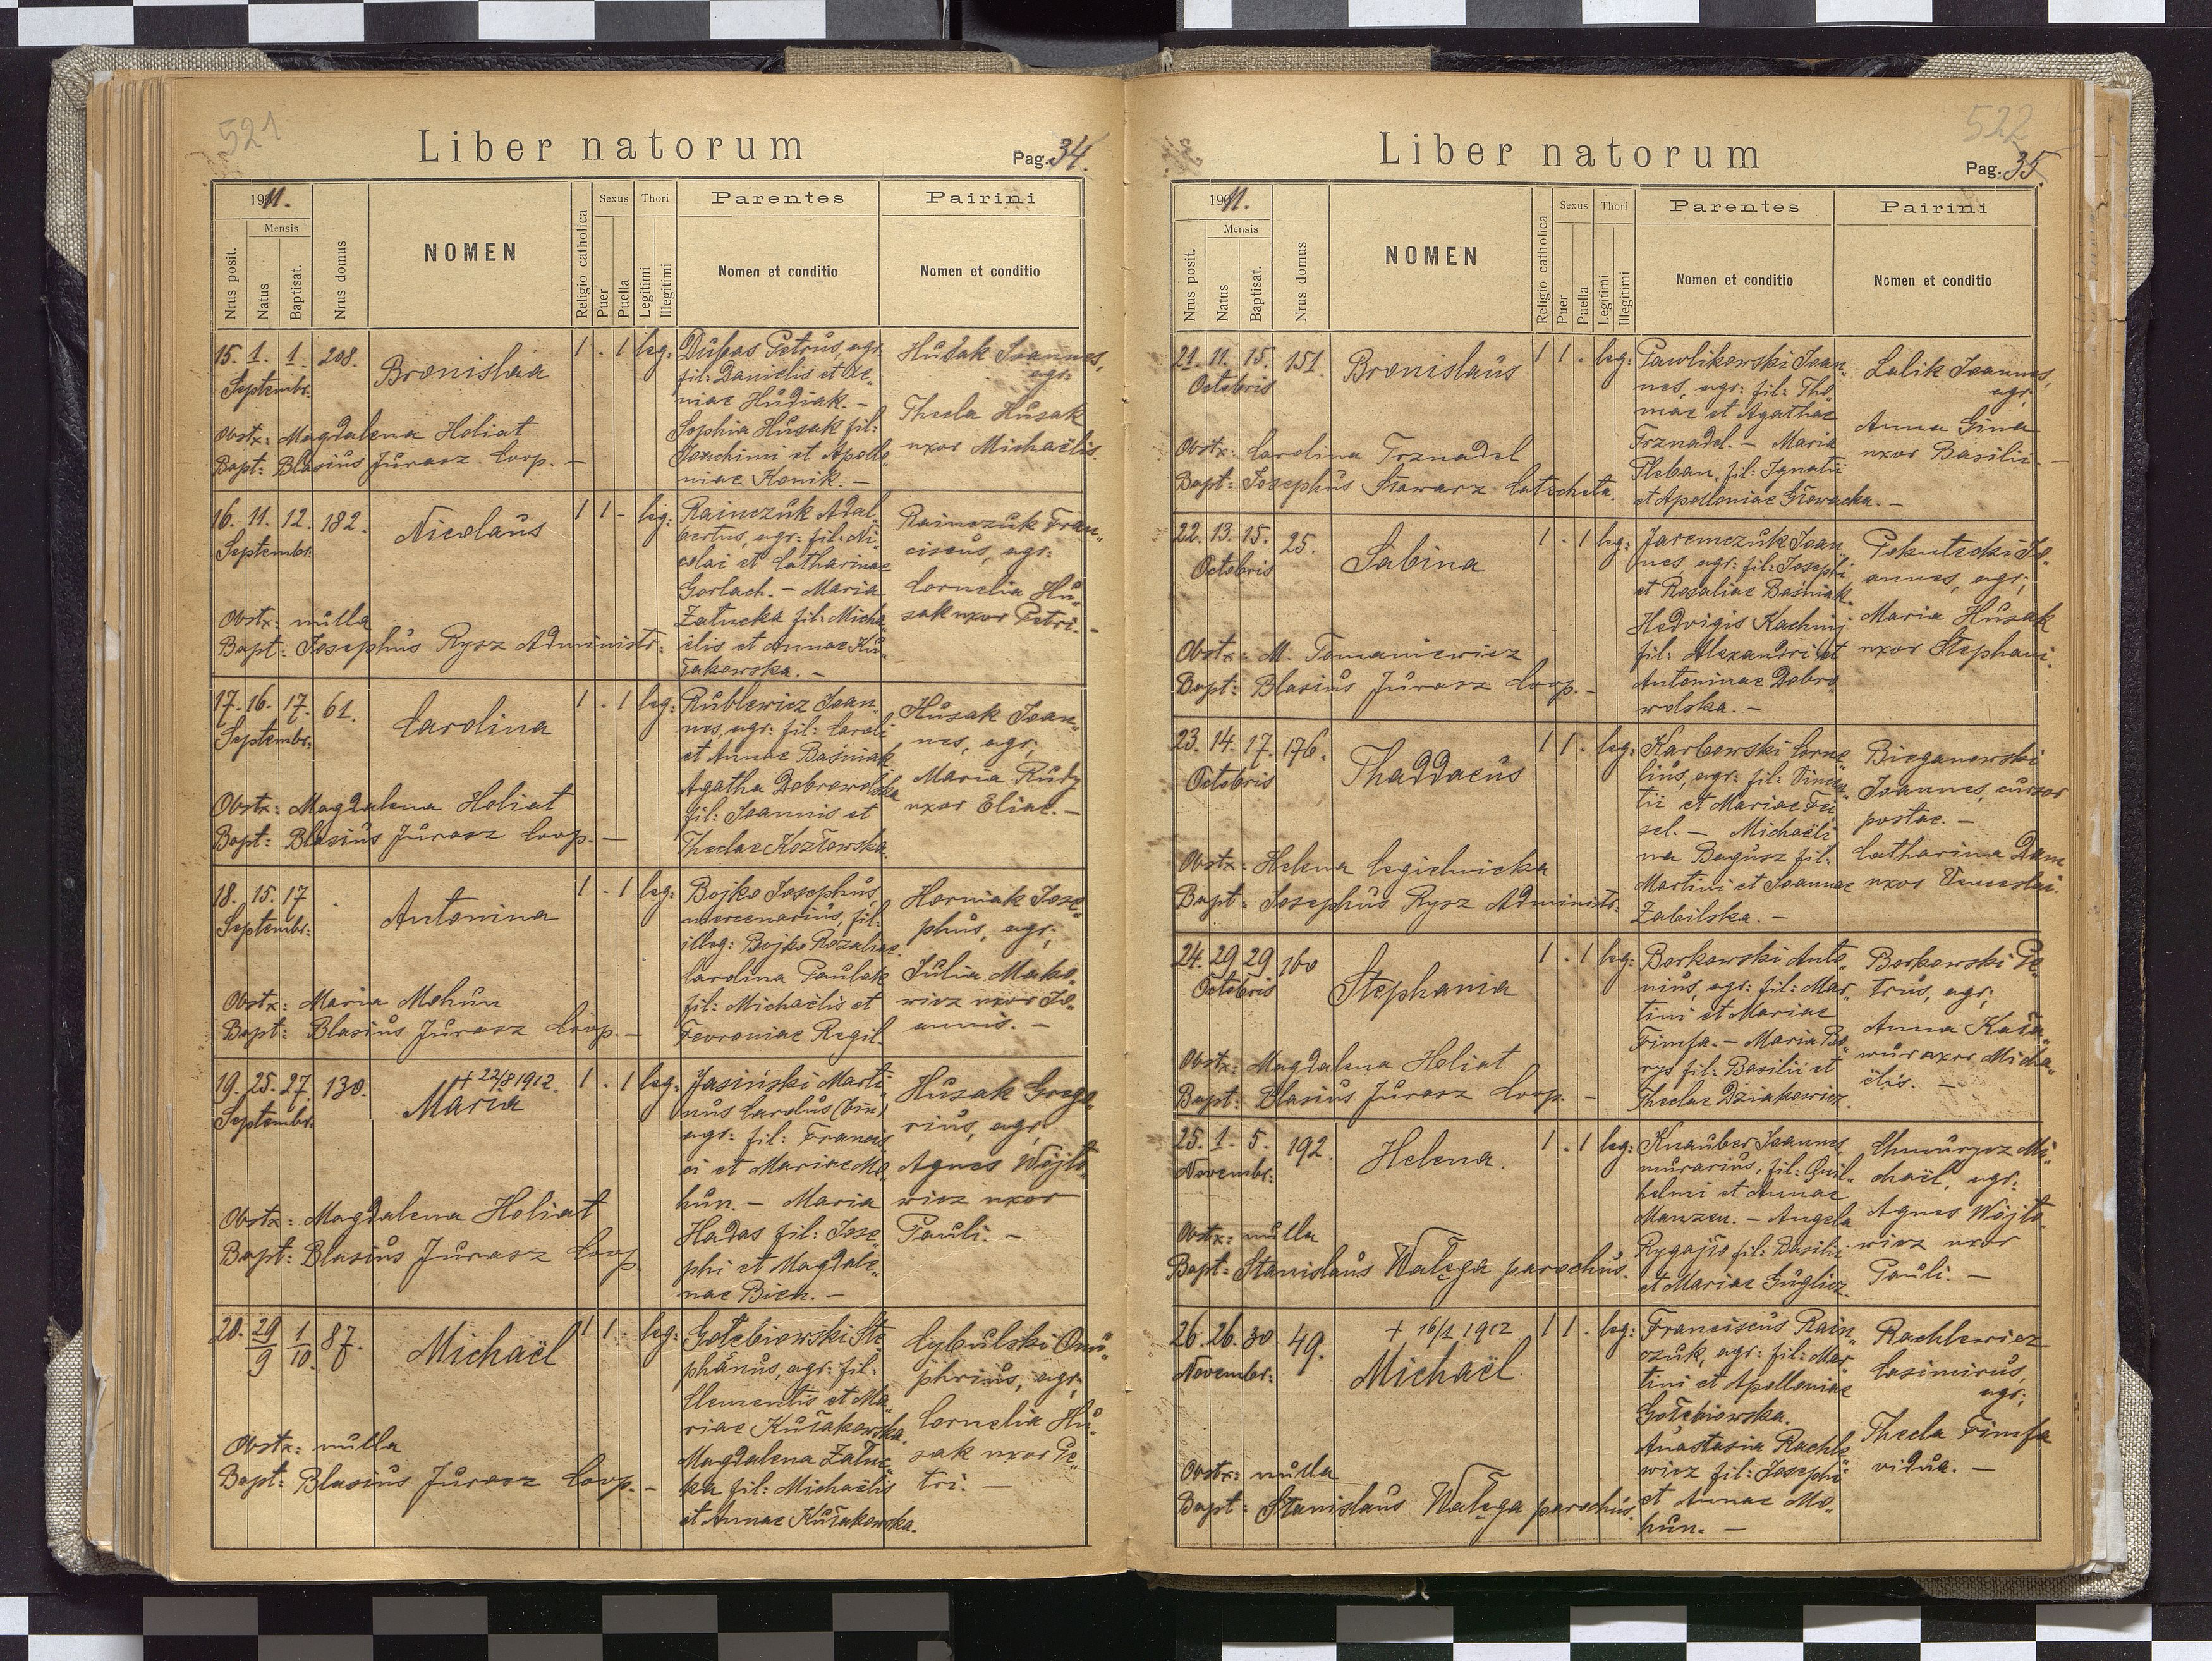 521
Liber natorum
Pag. 34.
1911.
Mensis
Nrus posit.
Natus
Baptisat.
Nrus domus
NOMEN
Religio catholica
Sexus
Puer
Puella
Thori
Legitimi
Illegitimi
Parentes
Nomen et conditio
Pairini
Nomen et conditio
15. 1. 1. 208.
Septembr:
Bronislaa
1 . 1 leg:
Obstx: Magdalena Holiat
Bapt: Blasius Jurasz Coop. –
Dubas Petrus, agr:
fil: Danielis et Xe„
niae Hudiak. –
Sophia Husak fil:
Joachimi et Apollo„
niae Konik. –
Husak Joannes,
agr:
Thecla Husak
uxor Michaëlis.
16. 11. 12. 182.
Septembr:
Nicolaus
1 1 - leg:
Obstx: nulla
Bapt: Josephus Rysz Administr:
Rainczuk Adal„
bertus, agr: fil: Ni„
colai et Catharinae
Gorlach. – Maria
Załucka fil: Micha„
ëlis et Annae Ku„
łakowska. –
Rainczuk Fran„
ciscus, agr:
Cornelia Hu„
sak uxor Petri. –
17. 16. 17. 61.
Septembr:
Carolina
1 . 1 leg:
Obstx: Magdalena Holiat
Bapt: Blasius Jurasz Coop. –
Rublewicz Joan„
nes, agr: fil: Caroli
et Annae Baśniak
Agatha Dobrowolska
fil: Joannis et
Theclae Kozłowska.
Husak Joan„
nes, agr;
Maria Rudy
uxor Eliae. –
18. 15. 17 .
Septembr:
Antonina
1 . 1 leg:
Obstx: Maria Mohun
Bapt: Blasius Jurasz Coop. –
Bojko Josephus,
mercenarius, fil:
illeg: Bojko Rozaliae.
Carolina Paulak
fil: Michaëlis et
Fevroniae Regil.
Horniak Jose„
phus, agr;
Julia Mako„
wicz uxor Jo„
annis. –
19. 25. 27. 130.
Septembr:
+ 22/8 1912.
Maria
1 . 1 leg:
Obstx: Magdalena Holiat
Bapt: Blasius Jurasz Coop
Jasiński Marti„
nus Carolus (bin)
agr: fil: Francis
ci et Mariae Mo„
hun. – Maria
Hadas fil: Jose„
phi et Magdale„
nae Bien. –
Husak Grego„
rius, agr,
Agnes Wójto„
wicz uxor
Pauli. –
20. 29/9 1/10. 87.
Michaël
1 1 - leg:
Obstx: nulla
Bapt: Blasius Jurasz Coop. –
Gołebiowski Ste„
phanus, agr: fil:
Clementis et Ma„
riae Kułakowska.
Magdalena Załuc„
ka fil: Michaëlis
et Annae Kułakowska.
Cybulski Onu„
phrius, agr,
Cornelia Hu„
sak uxor Pe„
tri. –
522
Liber natorum
Pag. 35.
1911.
Mensis
Nrus posit.
Natus
Baptisat.
Nrus domus
NOMEN
Religio catholica
Sexus
Puer
Puella
Thori
Legitimi
Illegitimi
Parentes
Nomen et conditio
Pairini
Nomen et conditio
21. 11. 15. 151.
Octobris
Bronislaus
1 1 . leg:
Obstx: Carolina Trznadel
Bapt: Josephus Stowarz Catecheta.
Pawlikowski Joan„
nes, agr: fil: Tho„
mae et Agathae
Trznadel. – Maria
Pleban, fil: Ignatii
et Apolloniae Głowacka. –
Lalik Joannes,
agr:
Anna Gina
uxor Basilii. –
22. 13. 15. 25.
Octobris
Sabina
1 . 1 leg:
Obstx: M. Tomaniewicz
Bapt: Blasius Jurasz Coop. –
Jaremczuk Joan„
nes, agr: fil: Josephi
et Rosaliae Baśniak.
Hedvigis Kachnij
fil: Alexandri et
Antoninae Dobro„
wolska. –
Pokutecki Jo„
annes, agr;
Maria Husak
uxor Stephani.
23. 14. 17. 176.
Octobris
Thaddaeus
1 1 . leg:
Obstx: Helena Cegielnicka
Bapt: Josephus Rysz Administr:
Karbowski Corne„
lius, agr: fil: Vincen„
tii et Mariae Fri„
sel. – Michaëli
na Bagusz fil:
Martini et Joannae
Zabilska. –
Bieganowski
Joannes, cursor
postae. –
Catharina Dam
uxor Venceslai.
24. 29 29 160
Octobris
Stephania
1 . 1 leg:
Obstx: Magdalena Holiat
Bapt: Blasius Jurasz Coop. –
Borkowski Anto„
nius, agr: fil: Mar„
tini et Mariae
Fimfa. – Maria Bo„
rys fil: Basilii et
Theclae Dziakowicz.
Borkowski Pe„
trus, agr;
Anna Kała„
wur uxor Micha„
ëlis. –
25. 1. 5. 192.
Novembr:
Helena.
1 . 1 leg:
Obstx: nulla
Bapt: Stanislaus Wałęga parochus.
Knauber Joannes,
murarius, fil: Guil„
helmi et Annae
Manzen. – Angela
Rygajło fil: Basilii
et Mariae Guglicz.
Chmurycz Mi„
chaël, agr:
Agnes Wójto„
wicz uxor
Pauli. –
26. 26. 30 49.
Novembr:
+ 16/2 1912
Michaël
1 1 . leg:
Obstx: nulla
Bapt: Stanislaus Wałęga parochus.
Franciscus Rain„
czuk, agr: fil: Mar„
tini et Apolloniae
Gołebiowska.
Anastasia Rachle„
wicz fil: Josephi
et Annae Mo„
hun. –
Rachlewicz
Casimirus,
agr;
Thecla Fimfa
vidua. –